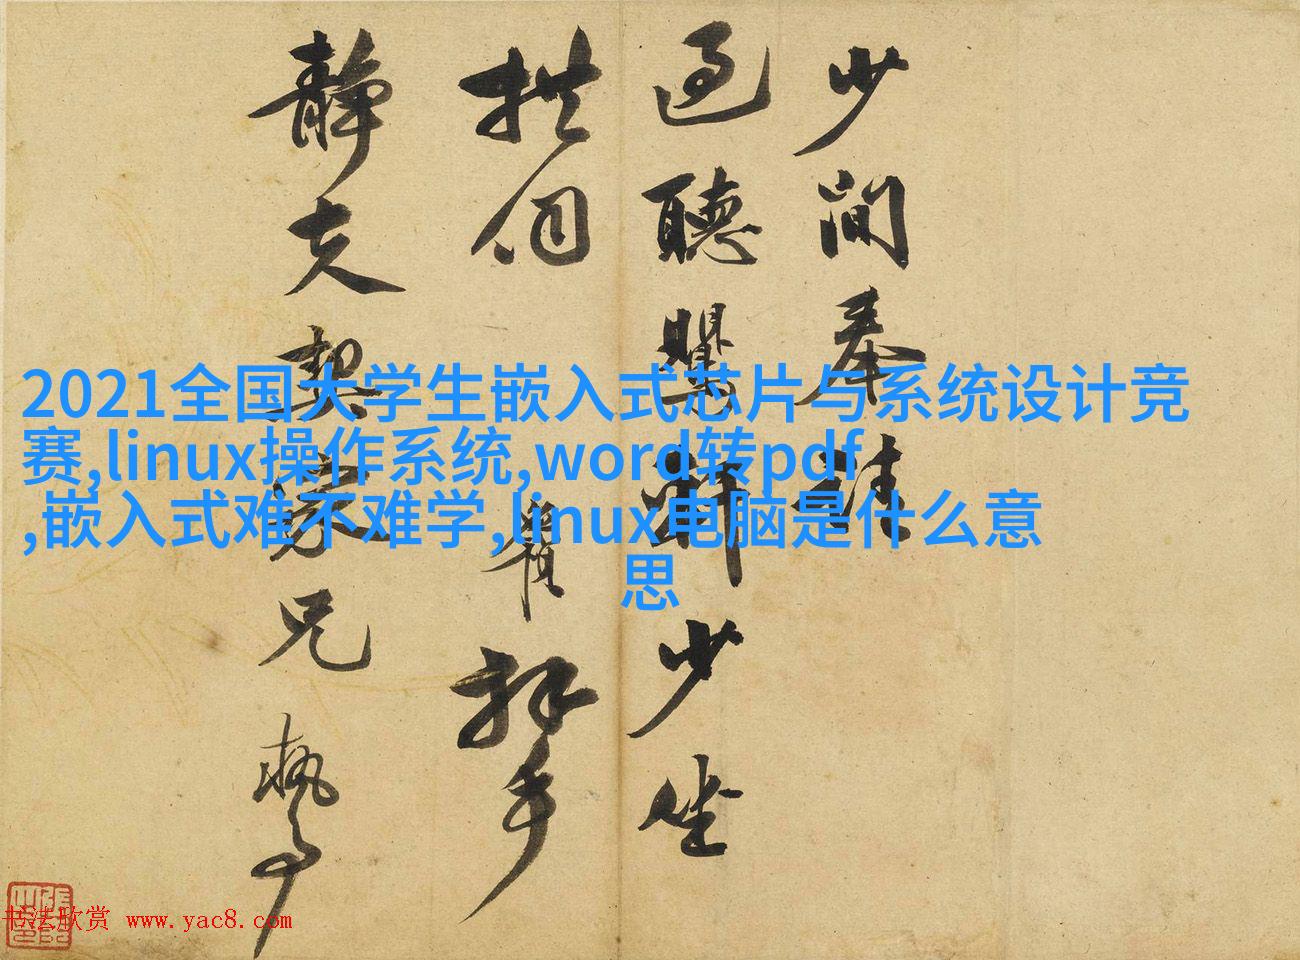 少间奉诣
过听鸎轩少坐
拱伺 瞿拜手
静夫契家兄执事
2021全国大学生嵌入式芯片与系统设计竞
赛,linux操作系统,word转pdf
,嵌入式难不难学,linux电脑是什么意
思
书法欣赏 www.yac8.com